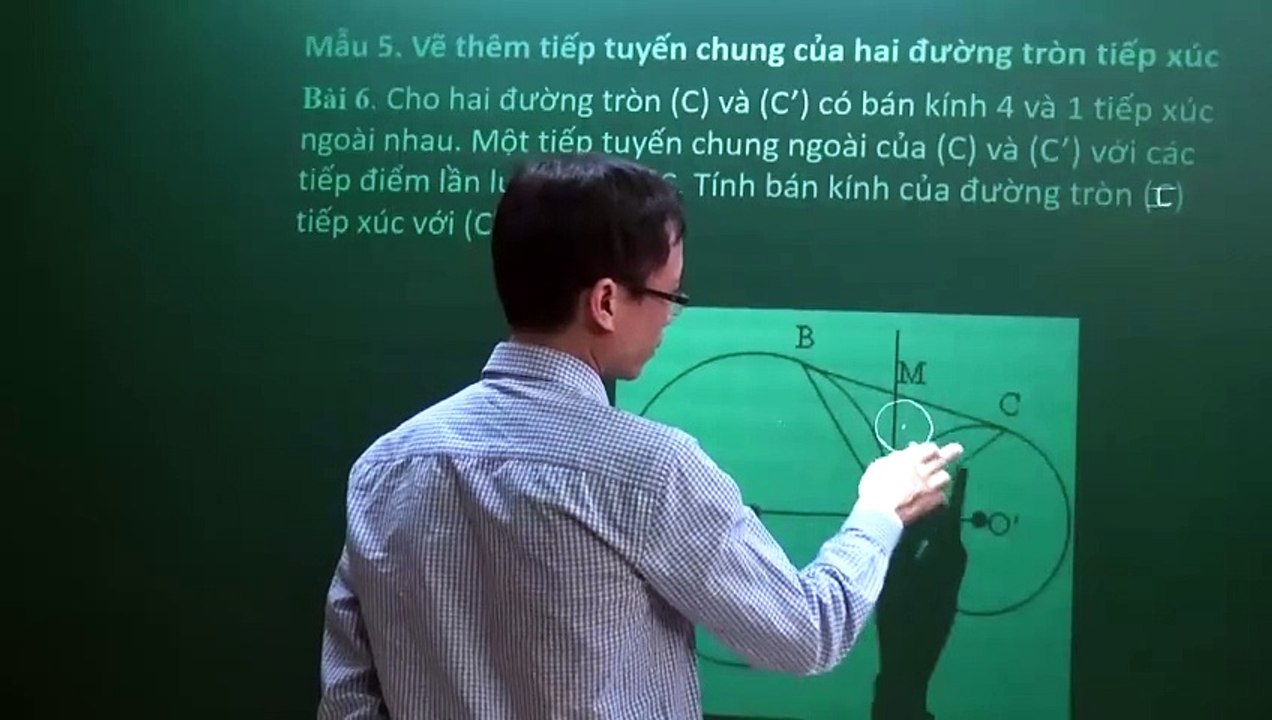 Mẫu 5. Vẽ thêm tiếp tuyến chung của hai đường tròn tiếp xúc
Bài 6. Cho hai đường tròn (C) và (C’) có bán kính 4 và 1 tiếp xúc
ngoài nhau. Một tiếp tuyến chung ngoài của (C) và (C’) với các
tiếp điểm lần Tính bán kính của đường tròn (I)
tiếp xúc với (C
B
M
C
O'